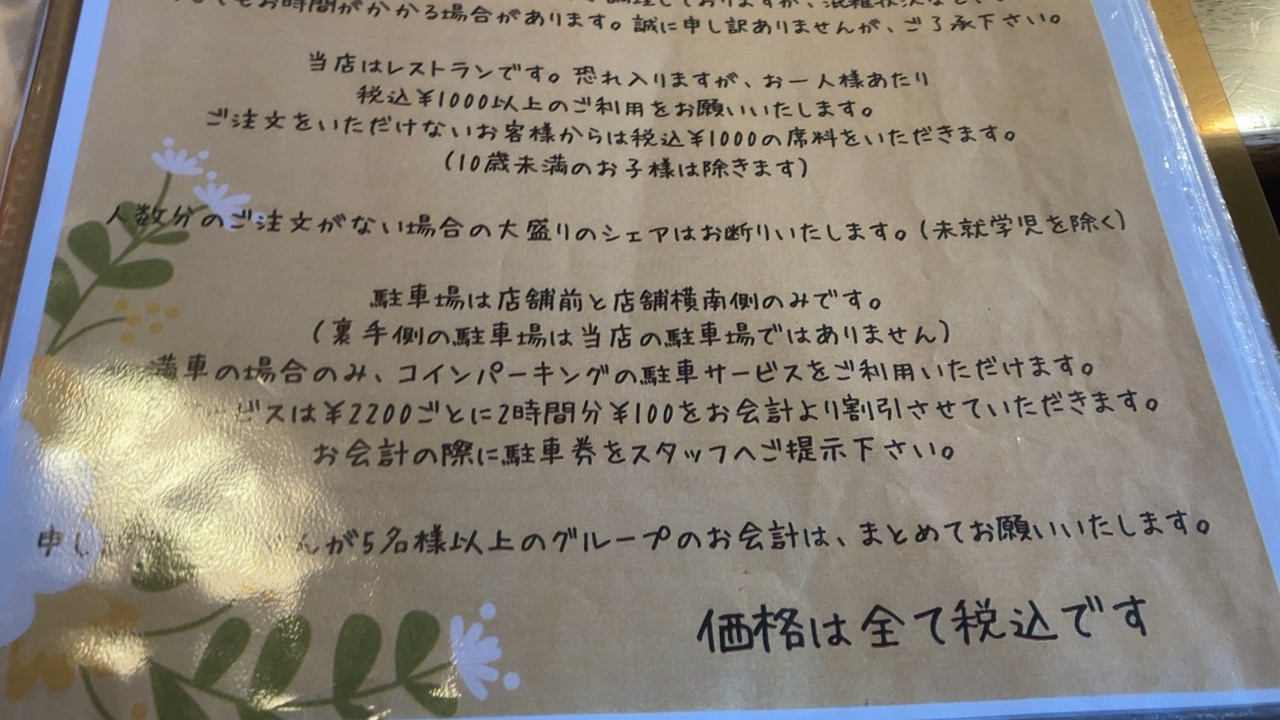 もお時間がかかる場合があります。誠に申し訳ありませんが、ご了承下さい。
当店はレストランです。恐れ入りますが、お一人様あたり
税込¥1000以上のご利用をお願いいたします。
ご注文をいただけないお客様からは税込¥1000の席料をいただきます。
(10歳未満のお子様は除きます)
人数分のご注文がない場合の大盛りのシェアはお断りいたします。(未就学児を除く)
駐車場は店舗前と店舗横南側のみです。
(裏手側の駐車場は当店の駐車場ではありません)
満車の場合のみ、コインパーキングの駐車サービスをご利用いただけます。
ビスは¥2200ごとに2時間分¥100をお会計より割引させていただきます。
お会計の際に駐車券をスタッフへご提示下さい。
申し んが5名様以上のグループのお会計は、まとめてお願いいたします。
価格は全て税込です